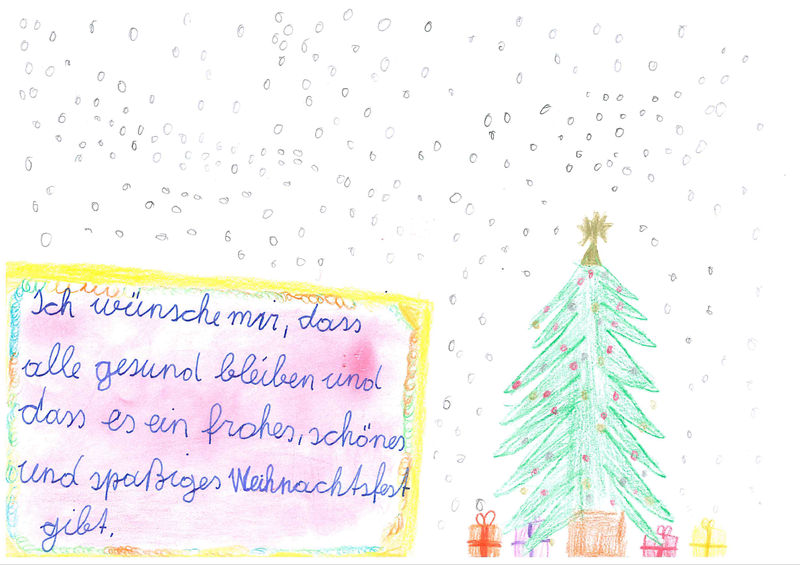 Ich wünsche mir, dass
alle gesund bleiben und
dass es ein frohes, schönes
und spaßiges Weihnachtsfest
gibt.